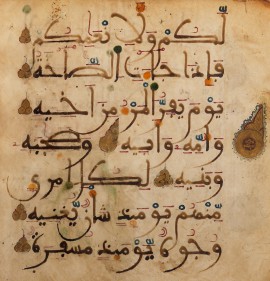 لَّكُمْ وَلِأَنْعَمِكُمْ
فَإِذَا جَاءَتِ الصَّاخَّةُ
يَوْمَ يَفِرُّ الْمَرْءُ مِنْ أَخِيهِ
وَأُمِّهِ وَأَبِيهِ وَصَحِبَتِهِ
وَبَنِيهِ لِكُلِّ امْرِئٍ
مِّنْهُمْ يَوْمَئِذٍ شَأْنٌ يُغْنِيهِ
وُجُوهٌ يَوْمَئِذٍ مُّسْفِرَةٌ